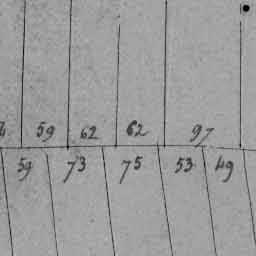 59 62 62 97
59 73 75 53 49